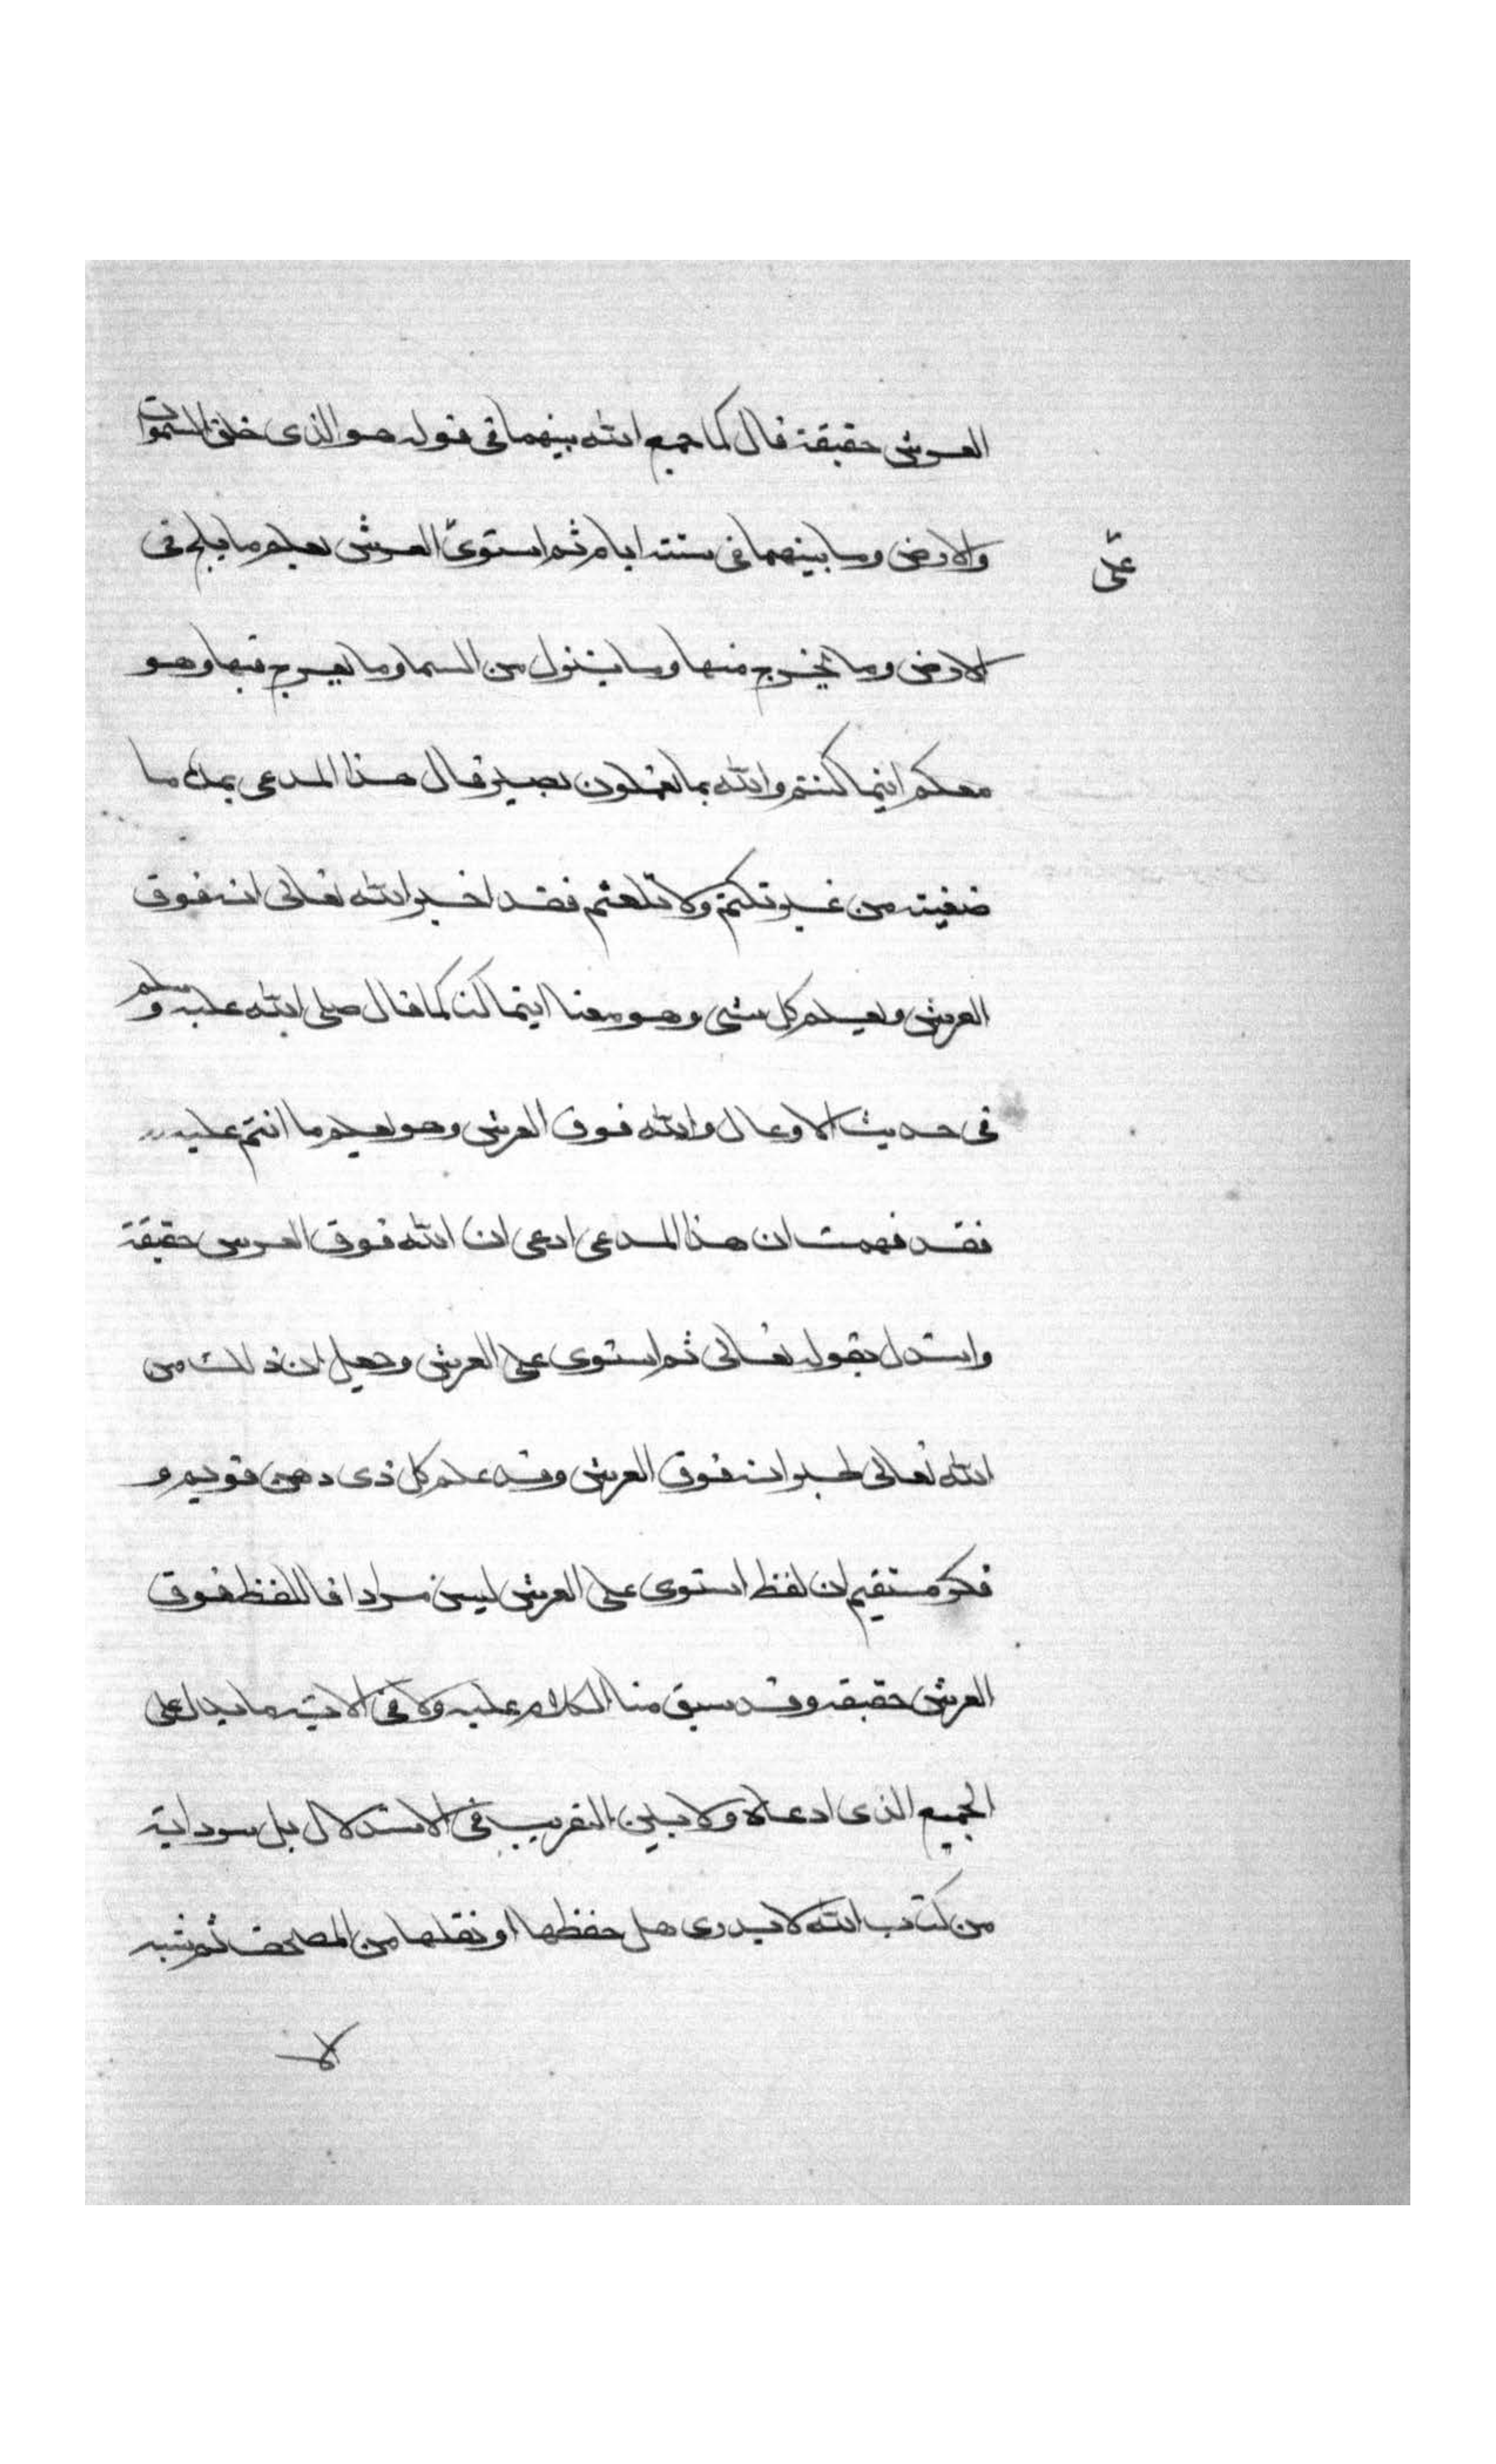 العرش حقيقة قال كما جمع الله بينهما في قوله هو الذى خلق السموات
والارض وما بينهما في ستة ايام ثم استوى العرش يعلم ما يلج في
على
الارض وما يخرج منها وما ينزل من السما وما يعرج فيها وهو
معكم اينما كنتم والله بما تعملون بصير قال هذا المدعى بملء ما
ضغيته من غير تكتم ولا تلعثم فقد اخبر الله تعالى انه فوق
العرش ويعلم كل شى وهو معنا اينما كنا كما قال صلى الله عليه وسلم
في حديث الاوعال والله فوق العرش وهو يعلم ما انتم عليه
فقد فهمت ان هذا المدعى ادعى ان الله فوق العرش حقيقة
واستدل بقوله تعالى ثم استوى على العرش وجعل ان ذلك من
الله تعالى خبر انه فوق العرش وقد علم كل ذى ذهن قويم و
فكر مستقيم ان لفظ استوى على العرش ليس مرادفا للفظ فوق
العرش حقيقه وقد سبق منا الكلام عليه ولا في الاية ما يدل على
الجمع الذى ادعاه ولا بين التقريب في الاستدلال بل سرد اية
من كتاب الله لا يدرى هل حفظها او نقلها من المصحف ثم شبه
لا